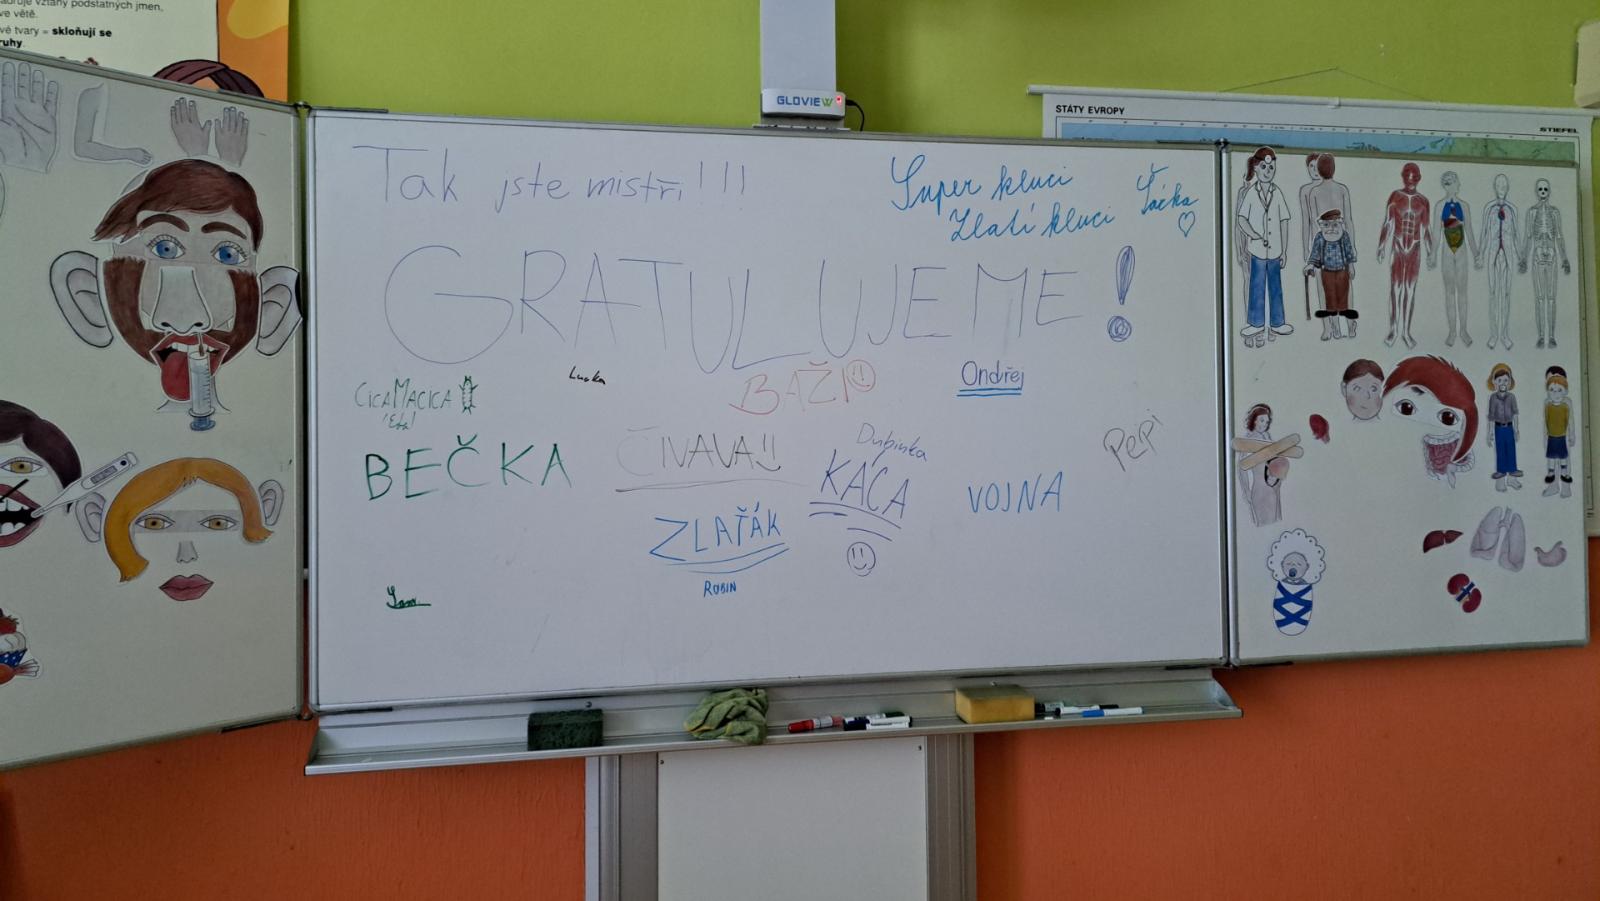 vztahy podstatných jmen,
ve větě.
vé tvary = skloňují se
GLOVIEW
STÁTY EVROPY
STIEFEL
Tak jste mistři!!!
Super kluci
Zlatí kluci
GRATULUJEME!
CICAMACICA
Lucka
BAŽI
Ondřej
BEČKA
ČIVAVA!!
Dubinka
KÁČA
VOJNA
PEPI
ZLAŤÁK
ROBIN